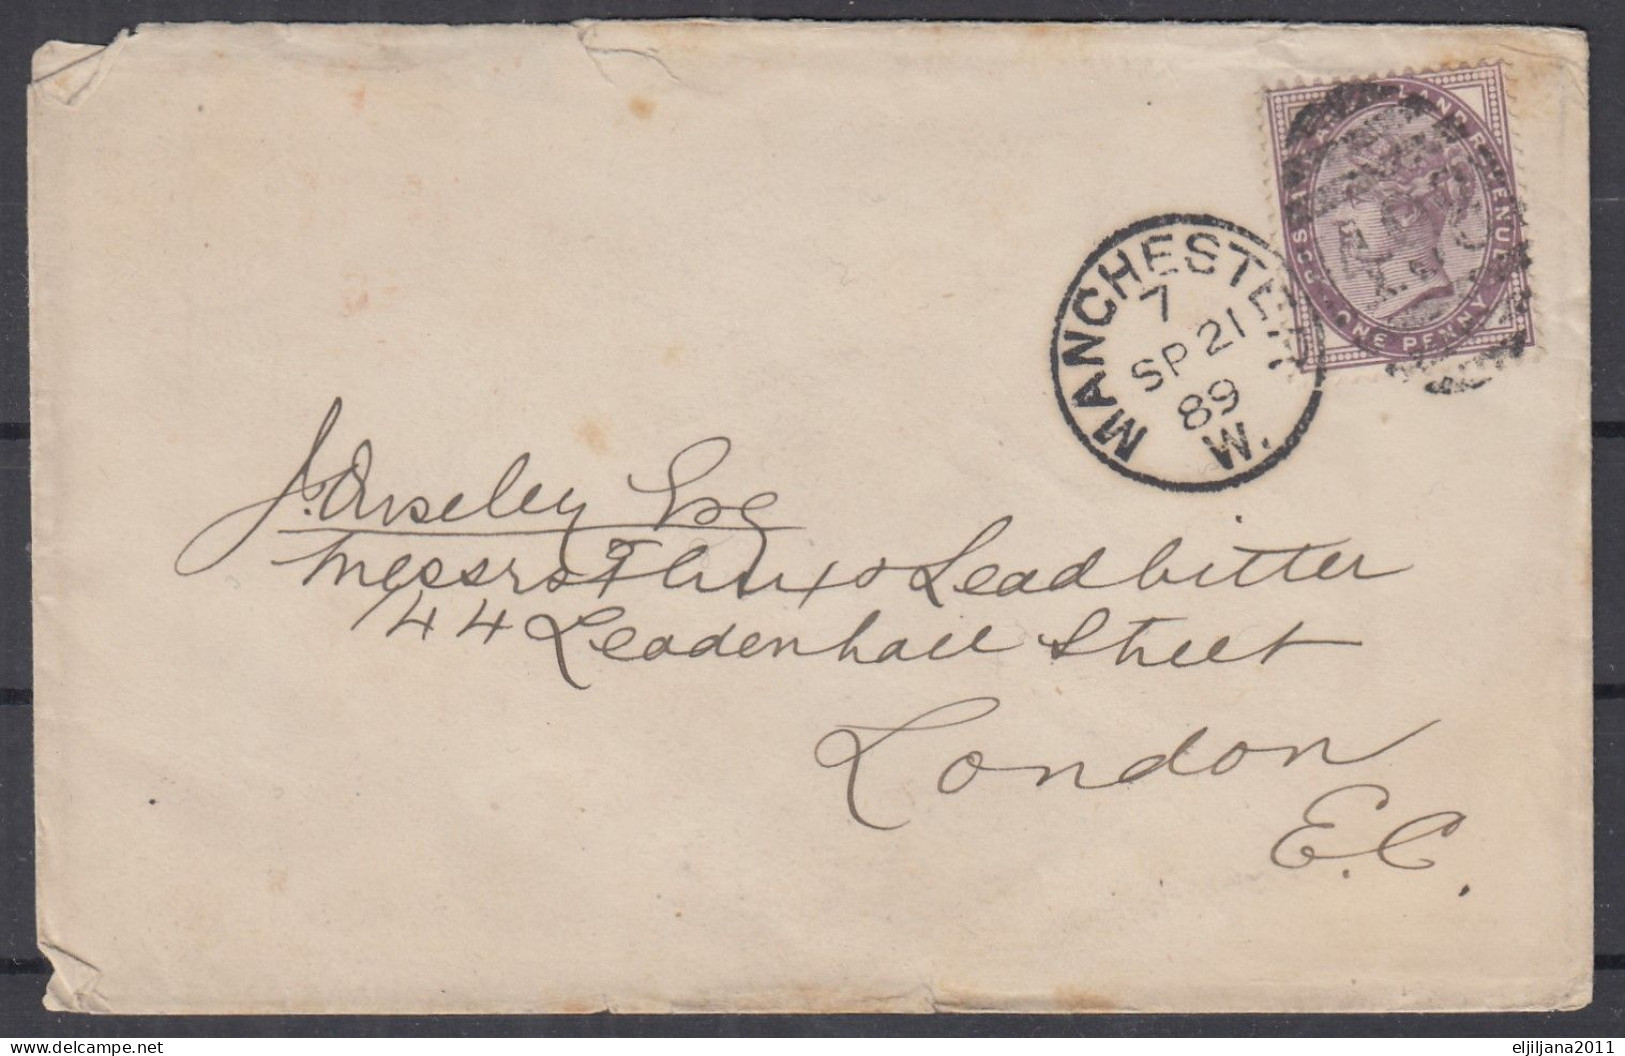 POSTAGE AND REVENUE
ONE PENNY
MANCHESTER
7
SP 21
89
W.
J. Anseley Esq
Messrs Flux & Leadbitter
144 Leadenhall Street
London
E.C.
delcampe.net
eljiljana2011